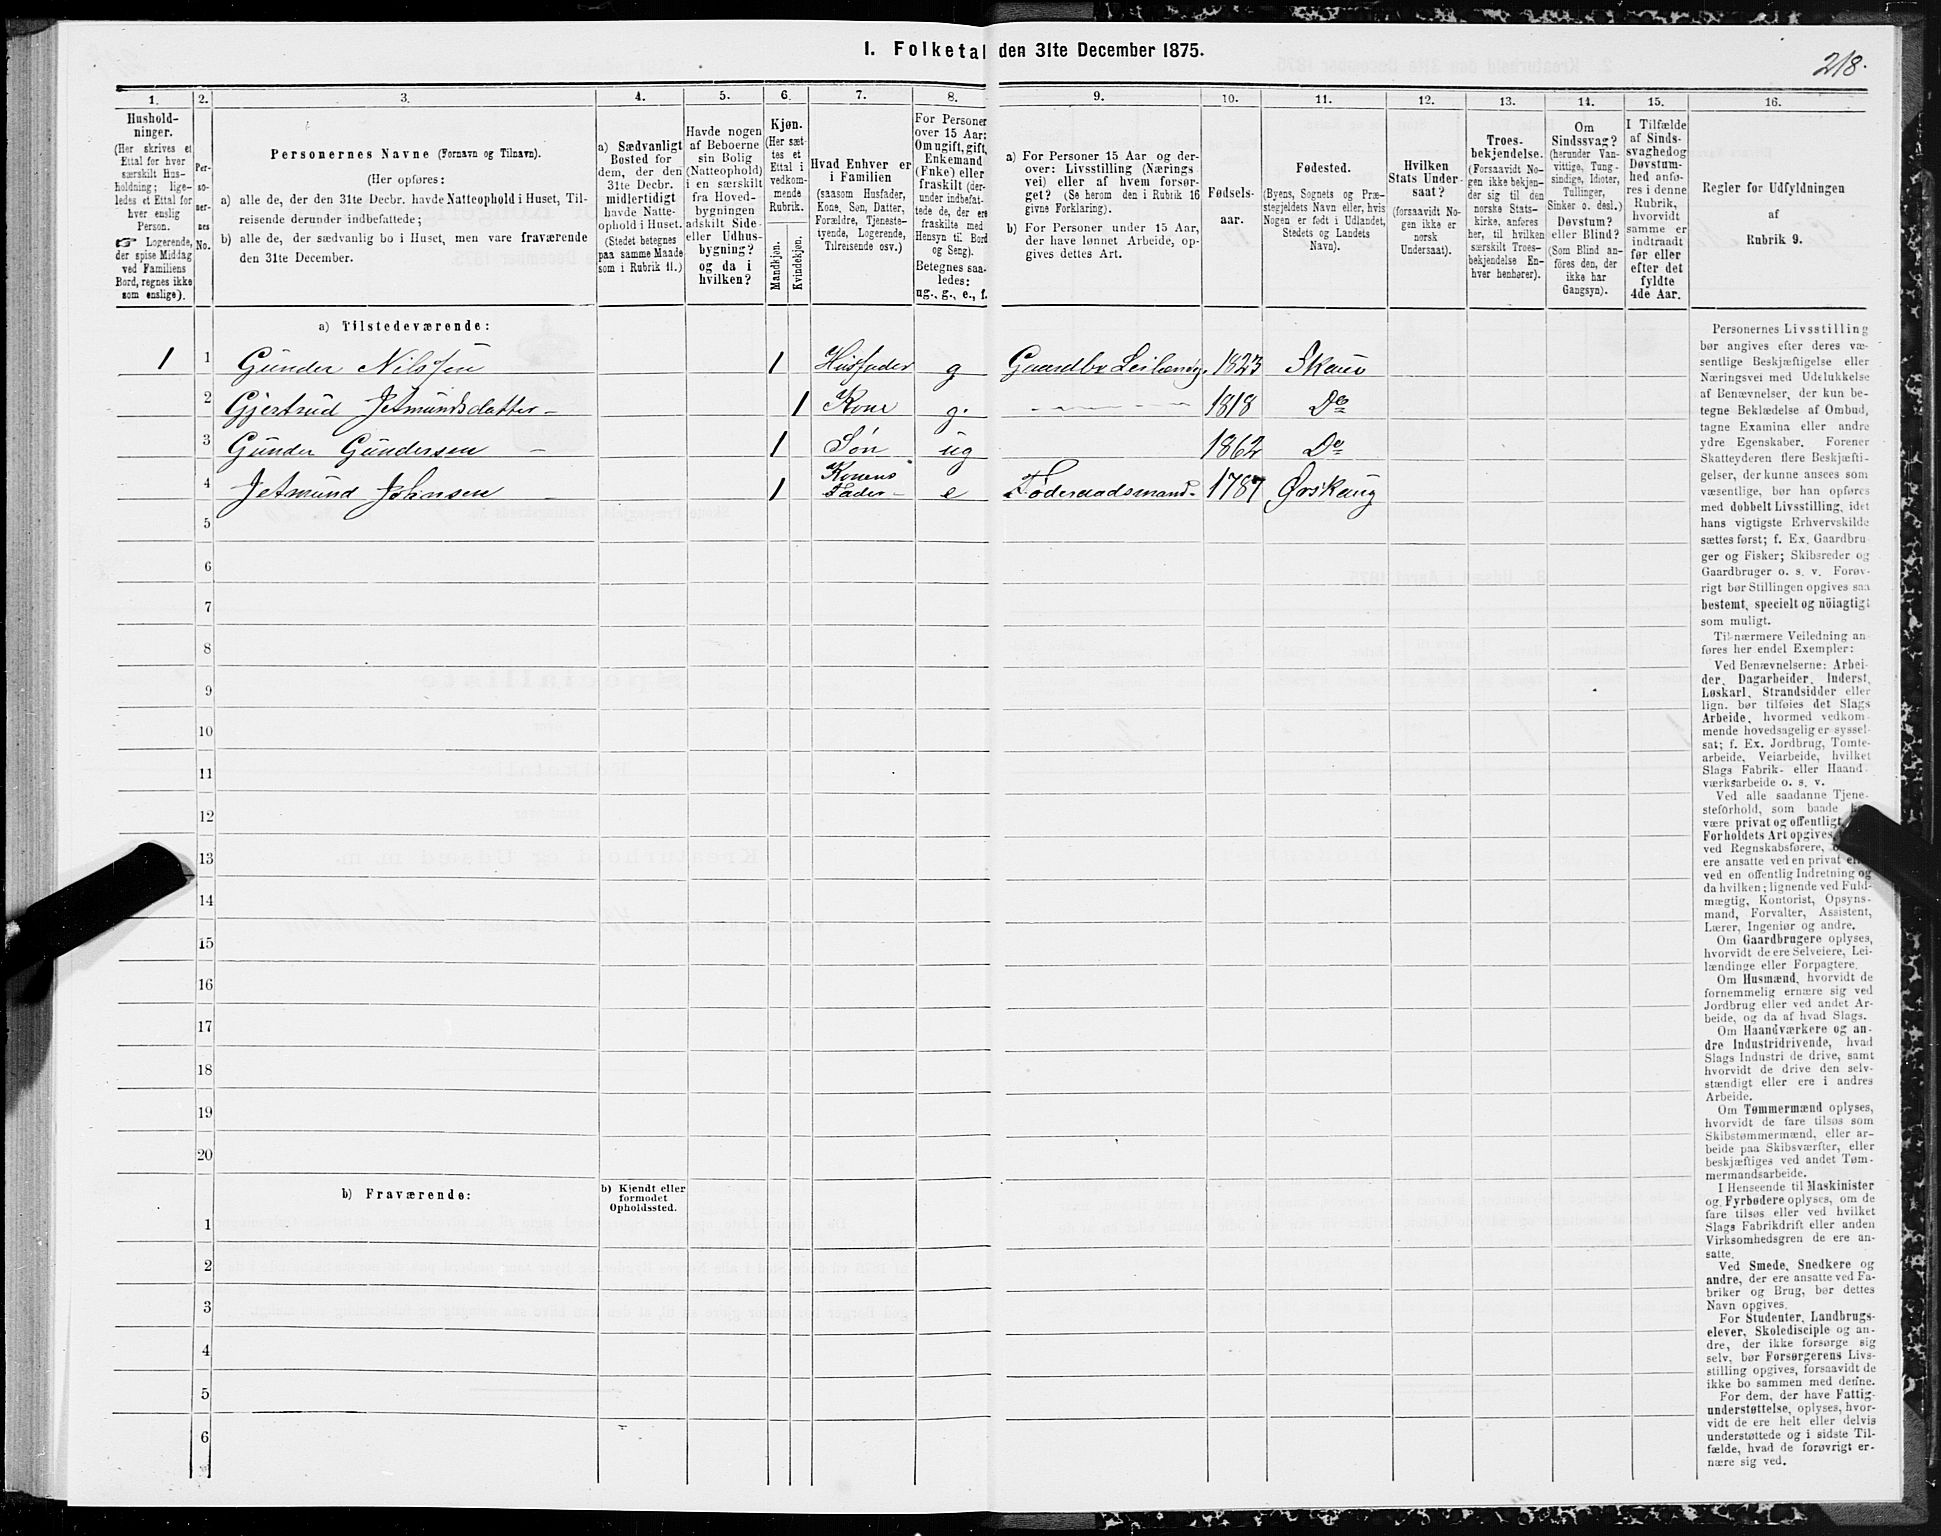 I. Folketal den 31te December 1875.
218.
1. 2. 3. 4. 5. 6. 7. 8. 9. 10. 11. 12. 13. 14. 15. 16.
Hushold-
ninger.
(Her skrives et
Ettal for hver
særskilt Hus-
holdning; lige-
ledes et Ettal for
hver enslig
Person.
☞ Logerende,
der spise Middag
ved Familiens
Bord, regnes ikke
som enslige).
Per-
so-
ner-
nes
No.
Personernes Navne (Fornavn og Tilnavn).
(Her opføres:
a) alle de, der den 31te Decbr. havde Natteophold i Huset, Til-
reisende derunder indbefattede;
b) alle de, der sædvanlig bo i Huset, men vare fraværende
den 31te December.
a) Sædvanligt
Bosted for
dem, der den
31te Decbr.
midlertidigt
havde Natte-
ophold i Huset.
(Stedet betegnes
paa samme Maade
som i Rubrik 11.)
Havde nogen
af Beboerne
sin Bolig
(Natteophold)
i en særskilt
fra Hoved-
bygningen
adskilt Side-
eller Udhus-
bygning?
og da i
hvilken?
Kjøn.
(Her sæt-
tes et
Ettal i
vedkom-
mende
Rubrik.
Mandkjøn.
Kvindekjøn.
Hvad Enhver er
i Familien
(saasom Husfader,
Kone, Søn, Datter,
Forældre, Tjeneste-
tyende, Logerende,
Tilreisende osv.)
For Personer
over 15 Aar:
Om ugift, gift,
Enkemand
(Enke) eller
fraskilt (der-
under indbefat-
tede de, der ere
fraskilte med
Hensyn til Bord
og Seng).
Betegnes saa-
ledes:
ug., g., e., f.
a) For Personer 15 Aar og der-
over: Livsstilling (Nærings
vei) eller af hvem forsør-
get? (Se herom den i Rubrik 16
givne Forklaring).
b) For Personer under 15 Aar,
der have lønnet Arbeide, op-
gives dettes Art.
Fødsels-
aar.
Fødested.
(Byens, Sognets og Præ-
stegjeldets Navn eller, hvis
Nogen er født i Udlandet,
Stedets og Landets
Navn).
Hvilken
Stats Under-
saat?
(forsaavidt No-
gen ikke er
norsk
Undersaat).
Troes-
bekjendelse.
(Forsaavidt No-
gen ikke bekjen-
der sig til den
norske Stats-
kirke, anføres
her, til hvilken
særskilt Troes-
bekjendelse En-
hver henhører).
Om
Sindssvag?
(herunder Van-
vittige, Tung-
sindige, Idioter,
Tullinger,
Sinker o. desl.)
Døvstum?
eller Blind?
(Som Blind an-
føres den, der
ikke har
Gangsyn).
I Tilfælde
af Sinds-
svaghed og
Døvstum-
hed anfø-
res i denne
Rubrik,
hvorvidt
samme er
indtraadt
før eller
efter det
fyldte
4de Aar.
Regler for Udfyldningen
af
Rubrik 9.
a) Tilstedeværende:
1 1 Gunder Nilssen 1 Husfader g Gaardbr Leilænd. 1823 Skauv
2 Gjertrud Jetmundsdatter – 1 Kone g. – – – – 1818 Do
3 Gunder Gundersen – 1 Søn ug 1862 Do
4 Jetmund Johnsen – 1 Konens Fader – e Føderaadsmand. 1787 Ørskoug
5
6
7
8
9
10
11
12
13
14
15
16
17
18
19
20
b) Fraværende:
b) Kjendt eller
formodet
Opholdssted.
1
2
3
4
5
6
Personernes Livsstilling
bør angives efter deres væ-
sentlige Beskjæftigelse eller
Næringsvei med Udelukkelse
af Benævnelser, der kun be-
tegne Beklædelse af Ombud,
tagne Examina eller andre
ydre Egenskaber. Forener
Skatteyderen flere Beskjæfti-
gelser, der kunne ansees som
væsentlige, bør han opføres
med dobbelt Livsstilling, idet
hans vigtigste Erhvervskilde
sættes først; f. Ex. Gaardbru
ger og Fisker; Skibsreder og
Gaardbruger o. s. v. Forøv-
rigt bør Stillingen opgives saa
bestemt, specielt og nöiagtigt
som muligt.
Til nærmere Veiledning an-
føres her endel Exempler:
Ved Benævnelserne: Arbei-
der, Dagarbeider, Inderst,
Løskarl, Strandsidder eller
lign. bør tilføies det Slags
Arbeide, hvormed vedkom-
mende hovedsagelig er syssel-
sat; f. Ex. Jordbrug, Tomte-
arbeide, Veiarbeide, hvilket
Slags Fabrik- eller Haand-
værksarbeide o. s. v.
Ved alle saadanne Tjene-
steforhold, som baade
være privat og offentligt,
Forholdets Art opgives,
ved Regnskabsførere,
ere ansatte ved en privat
ved en offentlig Indretning og
da hvilken; lignende ved Fuld-
mægtig, Kontorist, Opsyns-
mand, Forvalter, Assistent,
Lærer, Ingeniør og andre.
Om Gaardbrugere oplyses,
hvorvidt de ere Selveiere, Lei-
lændinge eller Forpagtere.
Om Husmænd, hvorvidt de
fornemmelig ernære sig ved
Jordbrug eller ved andet Ar-
beide, og da af hvad Slags.
Om Haandværkere og an-
dre Industridrivende, hvad
Slags Industri de drive, samt
hvorvidt de drive den selv-
stændigt eller ere i andres
Arbeide.
Om Tømmermænd oplyses,
hvorvidt de fare tilsøs som
Skibstømmermænd, eller ar-
beide paa Skibsværfter, eller
beskjæftiges ved andet Tøm-
mermandsarbeide.
I Henseende til Maskinister
og Fyrbødere oplyses, om de
fare tilsøs eller ved hvilket
Slags Fabrikdrift eller anden
Virksomhedsgren de ere an-
satte.
Ved Smede, Snedkere og
andre, der ere ansatte ved Fa-
briker og Brug, bør dettes
Navn opgives.
For Studenter, Landbrugs-
elever, Skoledisciple og an-
dre, der ikke forsørge sig
selv, bør Forsørgerens Livs-
stilling opgives, forsaavidt de
ikke bo sammen med denne.
For dem, der have Fattig-
understøttelse, oplyses, hvor-
vidt de ere helt eller delvis
understøttede og i sidste Til-
fælde, hvad de forøvrigt er-
nære sig ved.